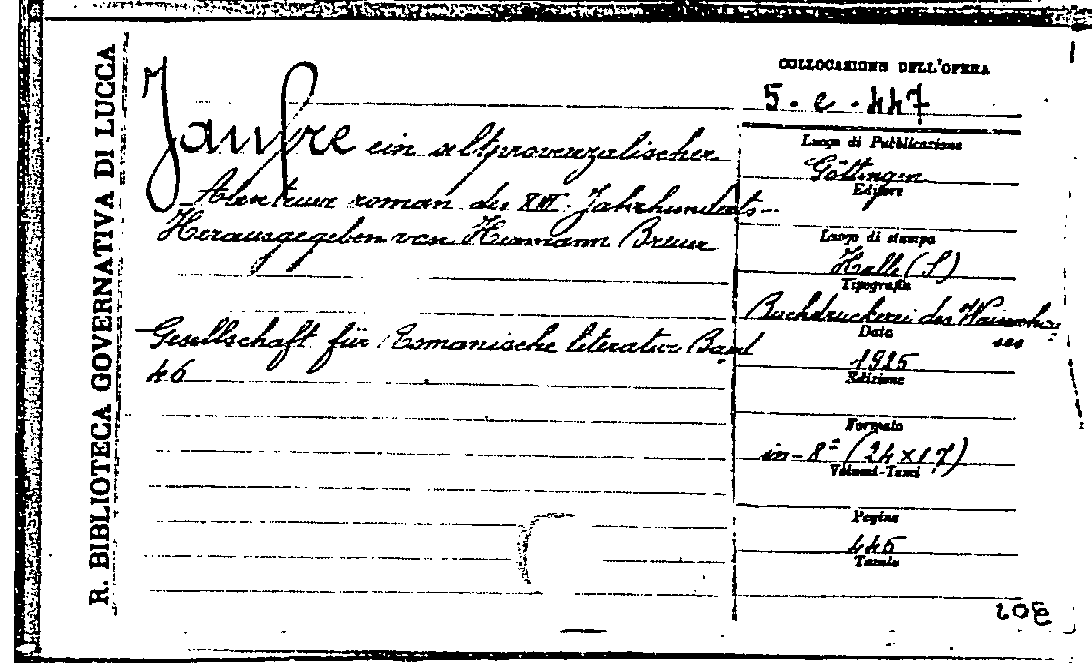 R. BIBLIOTECA GOVERNATIVA DI LUCCA
Jaufre ein altprovenzalischer
Abenteuer roman des XIII. Jahrhunderts
Herausgegeben von Hermann Breuer
Gesellschaft für Romanische literatur Band
46
COLLOCAZIONE DELL'OPERA
5. e. 447
Luogo di Pubblicazione
Göttingen
Editore
Luogo di stampa
Halle (S)
Tipografia
Buchdruckerei des Waisenhau
ses
Data
1925
Edizione
Formato
in-8° (24×17)
Volumi-Tomi
Pagine
445
Tavole